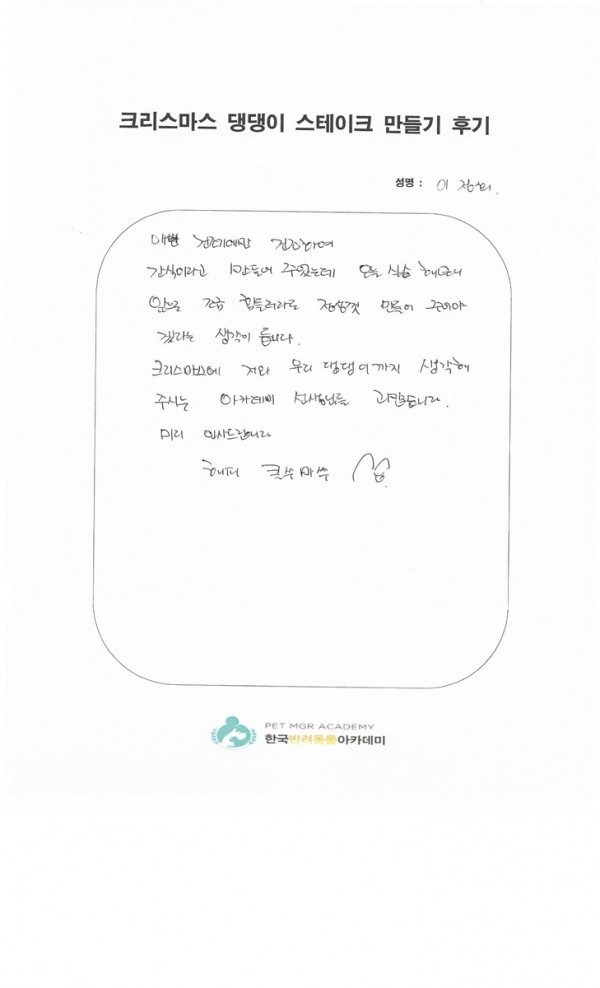 크리스마스 댕댕이 스테이크 만들기 후기
성명 : 이
매번 건조기에만 건조하여
간식이라고 만들어 주었는데 오늘 실습 해보니
앞으로 조금 힘들더라도 정성껏 만들어 주어야
겠다는 생각이 듭니다.
크리스마스에 저와 우리 댕댕이까지 생각해
주시는 아카데미 선생님들 감사합니다.
미리 인사드립니다
해피 크쓰마쓰
PET MGR ACADEMY
한국반려동물아카데미